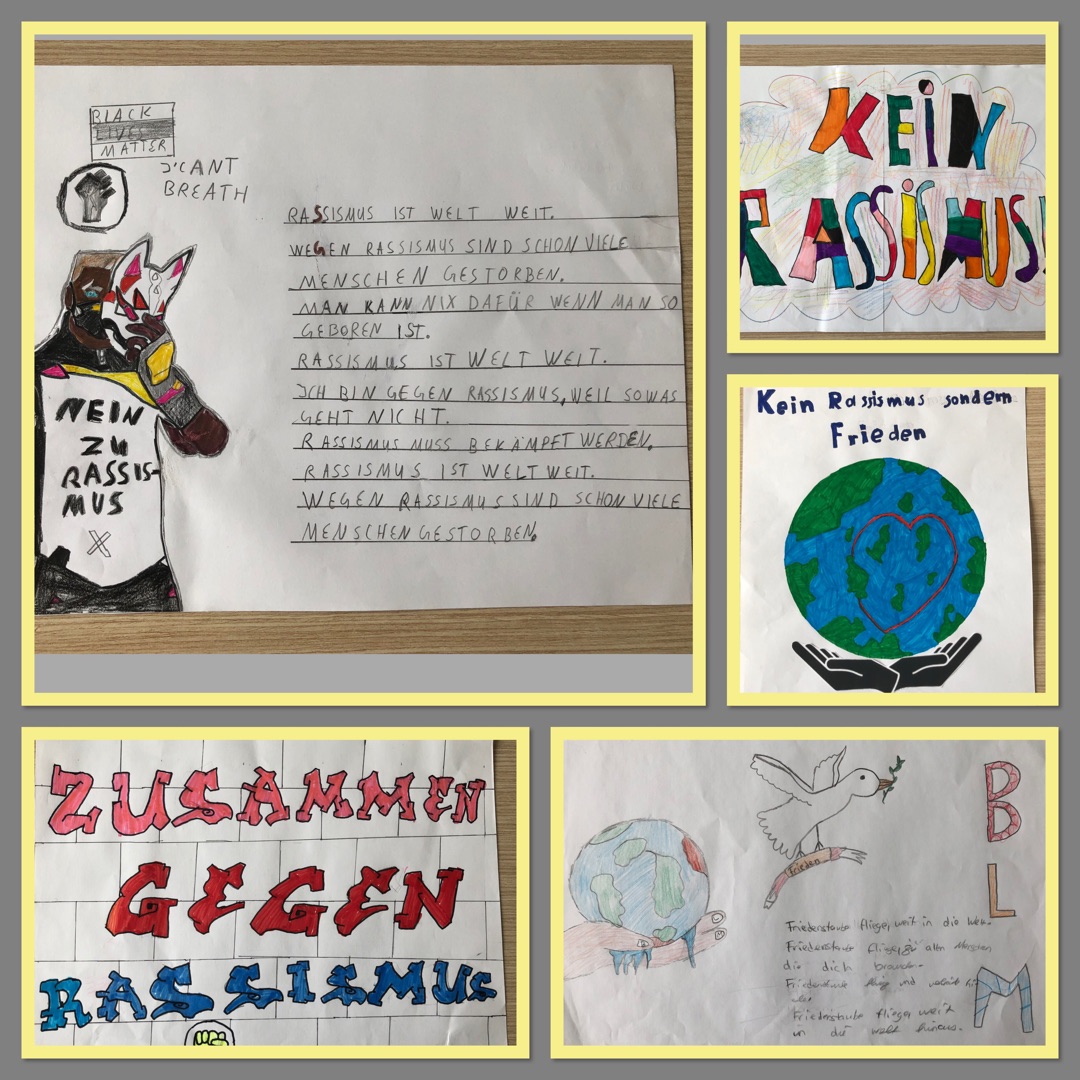 BLACK
LIVES
MATTER
I'CANT
BREATH
RASSISMUS IST WELT WEIT.
WEGEN RASSISMUS SIND SCHON VIELE
MENSCHEN GESTORBEN.
MAN KANN NIX DAFÜR WENN MAN SO
GEBOREN IST.
RASSISMUS IST WELT WEIT.
ICH BIN GEGEN RASSISMUS, WEIL SOWAS
GEHT NICHT.
RASSISMUS MUSS BEKÄMPFT WERDEN.
RASSISMUS IST WELT WEIT.
WEGEN RASSISMUS SIND SCHON VIELE
MENSCHEN GESTORBEN.
NEIN
ZU
RASSIS-
MUS
X
KEiN
RASSiSMUS!
Kein Rassismus sondern
Frieden
ZUSAMMEN
GEGEN
RASSISMUS
Frieden
B
L
M
Friedenstaube flieger weit in die Welt.
Friedenstaube alln Menschen
die dich brauchen.
Friedenstaube und
Friedenstaube flieger weit
in die welt hinaus.